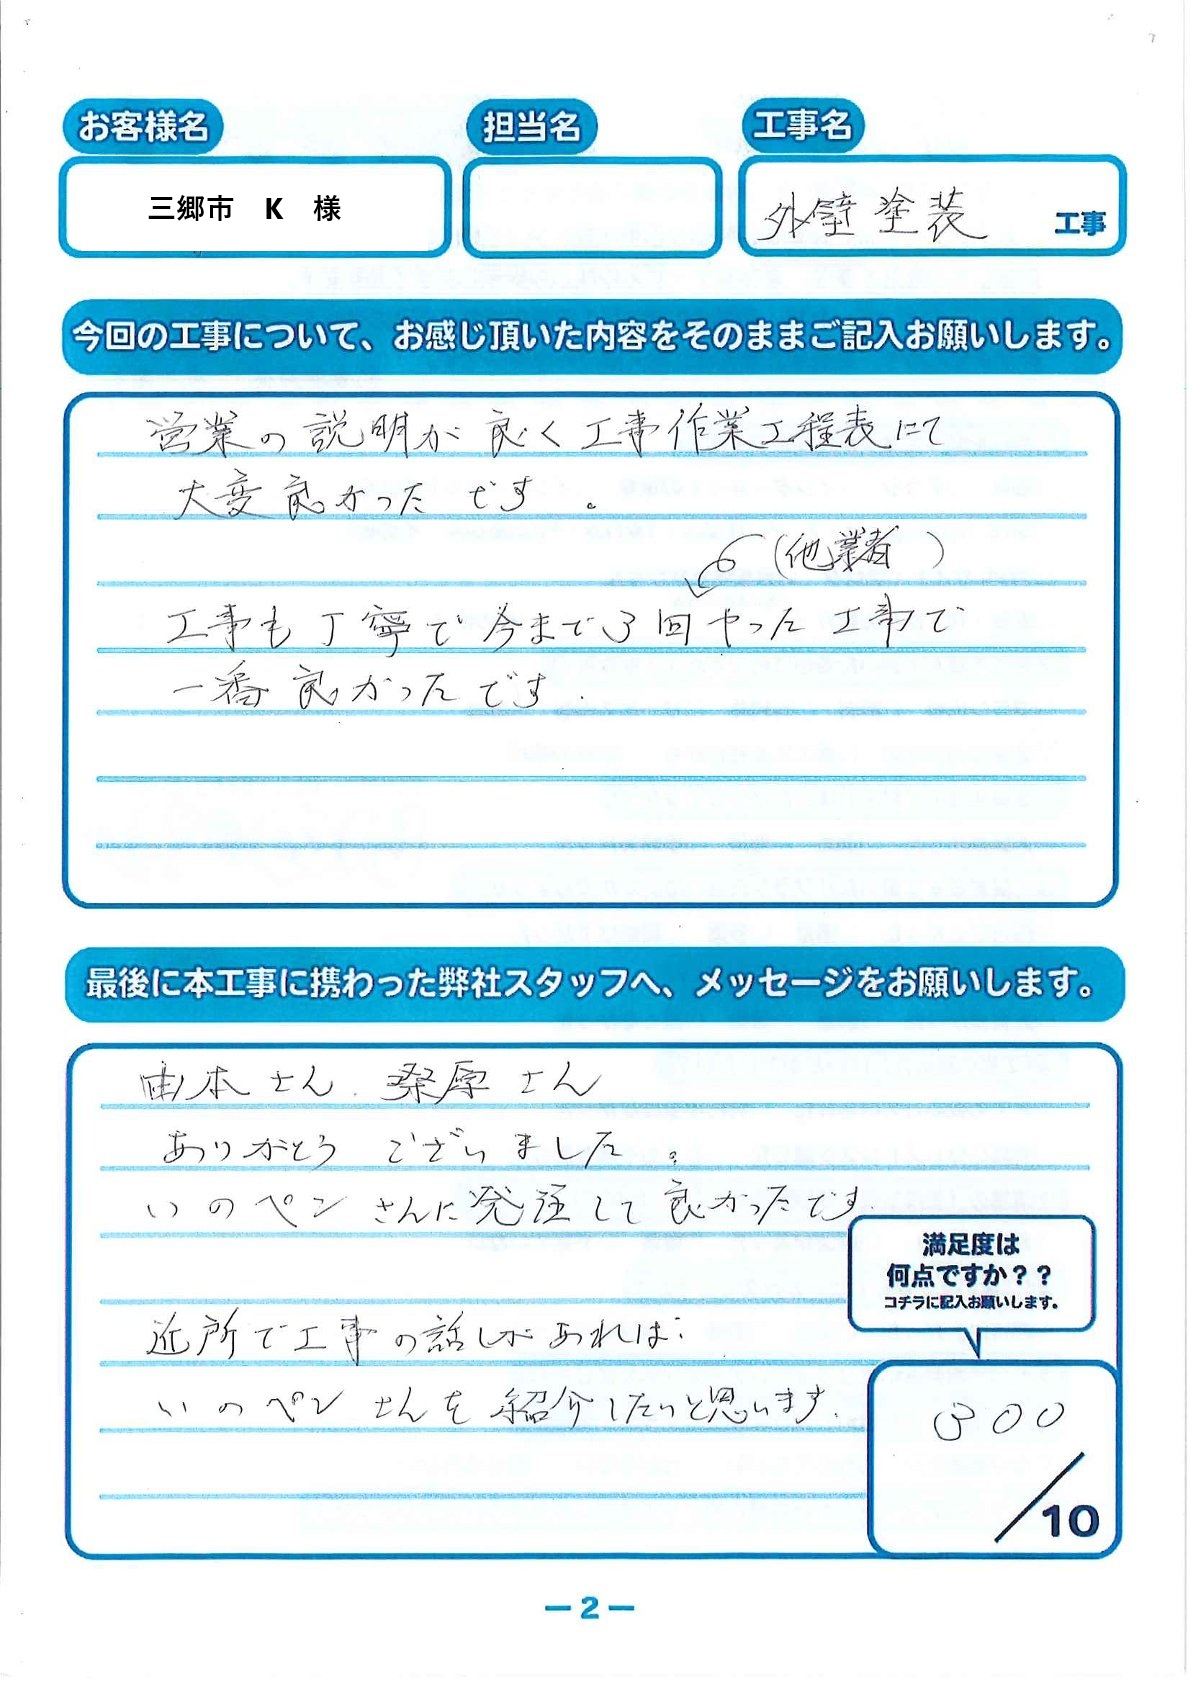 お客様名
担当名
工事名
三郷市 K 様
外壁塗装 工事
今回の工事について、お感じ頂いた内容をそのままご記入お願いします。
営業の説明が良く工事作業工程表にて
大変良かったです。
(他業者)
工事も丁寧で今まで3回やった工事で
一番良かったです.
最後に本工事に携わった弊社スタッフへ、メッセージをお願いします。
本さん. 桑原さん
ありがとうございました。
いのペンさんに発注して良かったです.
満足度は
何点ですか??
コチラに記入お願いします。
近所で工事の話しがあれば
いのペンさんを紹介したいと思います.
300
/10
ー2ー